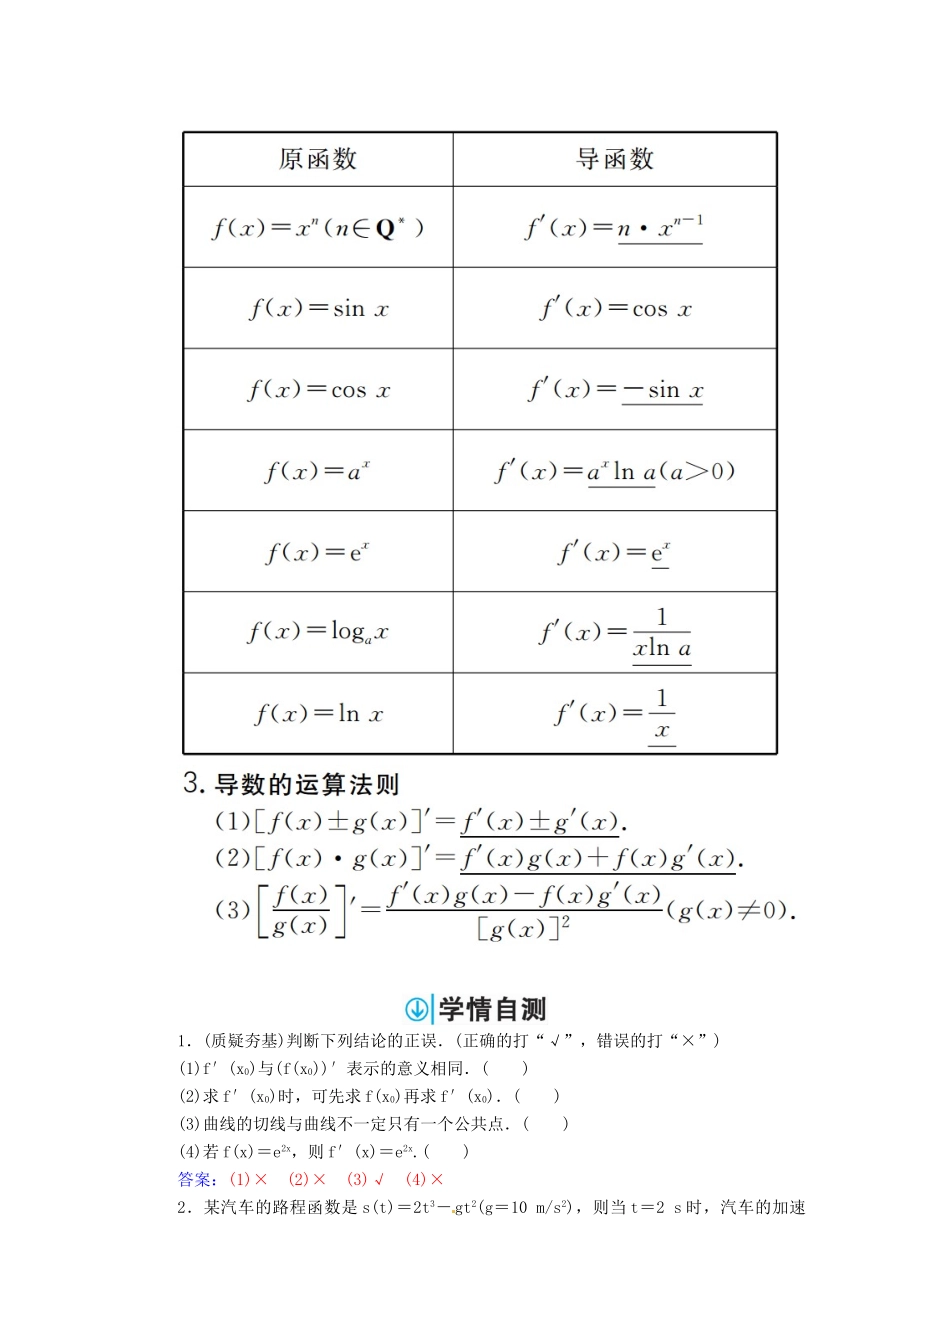 原函数 导函数
f(x)=xⁿ(n∈Q*) f′(x)=n·xⁿ⁻¹
f(x)=sin x f′(x)=cos x
f(x)=cos x f′(x)=-sin x
f(x)=aˣ f′(x)=aˣln a(a>0)
f(x)=eˣ f′(x)=eˣ
f(x)=logₐx f′(x)=1/(xln a)
f(x)=ln x f′(x)=1/x
3.导数的运算法则
(1)[f(x)±g(x)]′=f′(x)±g′(x).
(2)[f(x)·g(x)]′=f′(x)g(x)+f(x)g′(x).
(3)[f(x)/g(x)]′=(f′(x)g(x)-f(x)g′(x))/[g(x)]²(g(x)≠0).
学情自测
1.(质疑夯基)判断下列结论的正误.(正确的打“√”,错误的打“×”)
(1)f′(x₀)与(f(x₀))′表示的意义相同.( )
(2)求f′(x₀)时,可先求f(x₀)再求f′(x₀).( )
(3)曲线的切线与曲线不一定只有一个公共点.( )
(4)若f(x)=e²ˣ,则f′(x)=e²ˣ.( )
答案:(1)× (2)× (3)√ (4)×
2.某汽车的路程函数是s(t)=2t³-gt²(g=10 m/s²),则当t=2 s时,汽车的加速